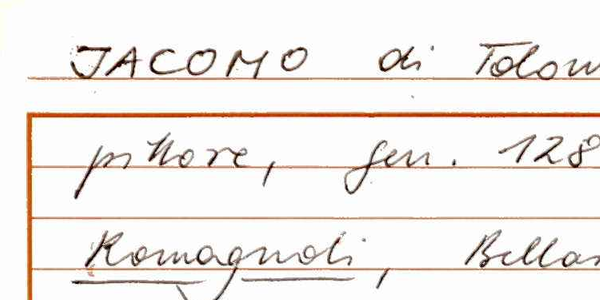 JACOMO di Tolom
pittore, gen. 128
Romagnoli, Bellar